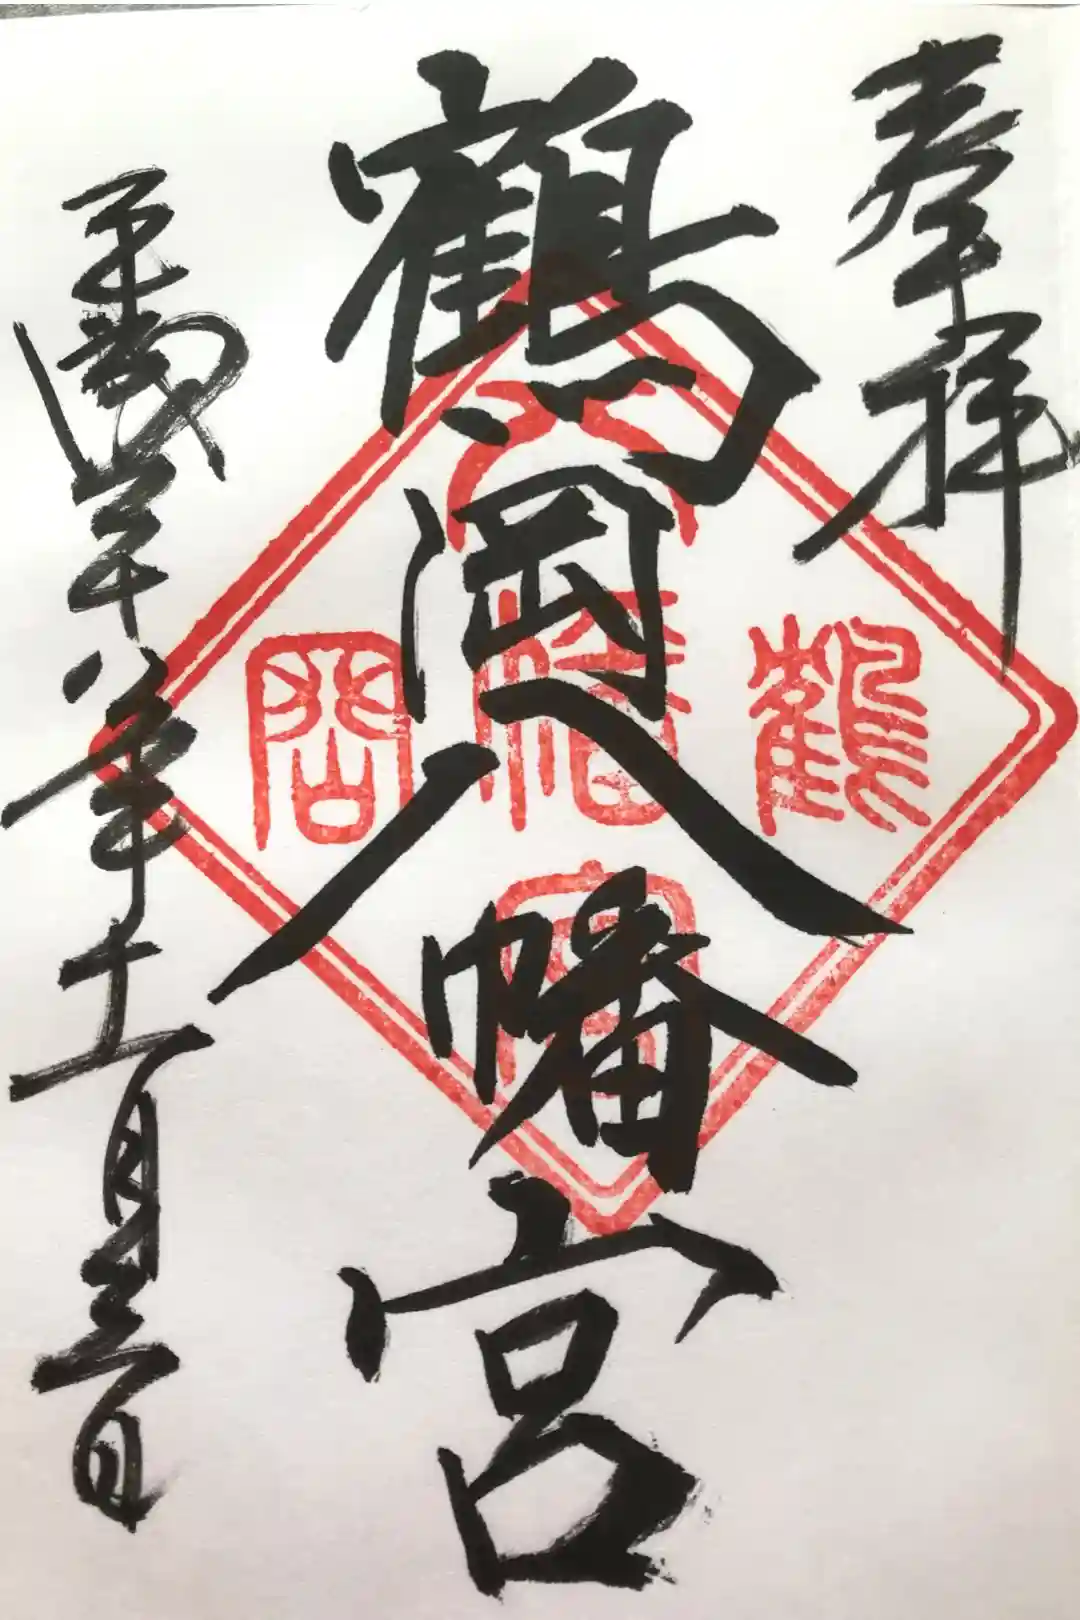 奉拝
鶴岡八幡宮
平成二十八年十一月三日
鶴岡八幡宮